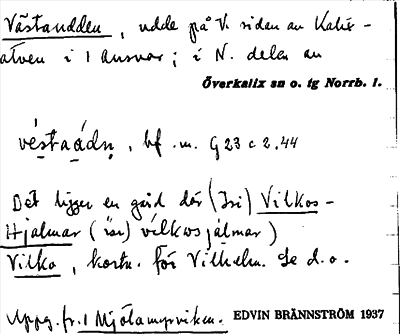 Västaudden, udde på V. sidan av Kalix-
älven i 1 Ansvar; i N. delen av
Överkalix sn o. tg Norrb. l.
vé̱staa̱dn̥, bf. m. G 23 c 2.44
Det ligger en gård där (Isi) Vilkos-
Hjalmar (ɪsɪ) vílkosjálmar)
Vilko, kortn. för Vilhelm. Se d.o.
Uppg. fr. 1 Mjölampsviken. EDVIN BRÄNNSTRÖM 1937